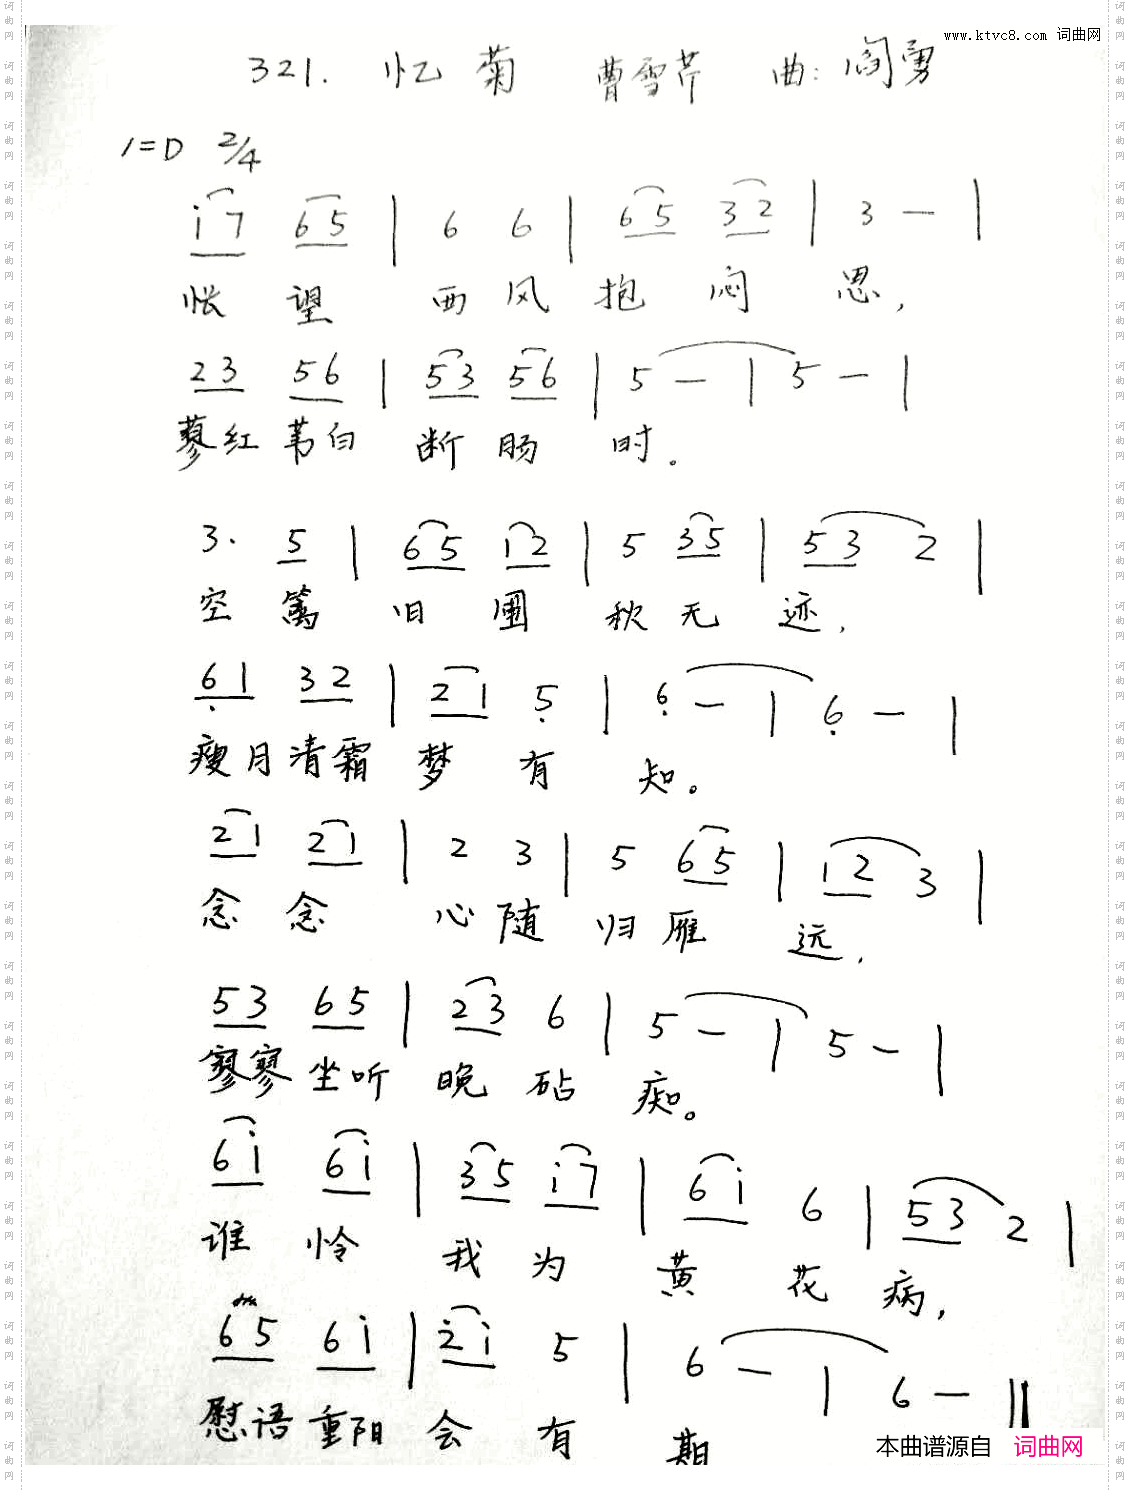 www.ktvc8.com 词曲网
321. 忆菊 曹雪芹 曲:阎勇
1=D 2/4
i7 65 | 6 6 | 65 32 | 3 — |
怅 望 西 风 抱 闷 思,
23 56 | 53 56 | 5 — | 5 — |
蓼红苇白 断 肠 时。
3. 5 | 65 i2 | 5 35 | 53 2 |
空 篱 旧 圃 秋 无 迹,
61 32 | 21 5 | 6 — | 6 — |
瘦月清霜 梦 有 知。
21 21 | 2 3 | 5 65 | i2 3 |
念 念 心 随 归 雁 远,
53 65 | 23 6 | 5 — | 5 — |
寥寥坐听 晚 砧 痴。
6i 6i | 35 i7 | 6i 6 | 53 2 |
谁 怜 我 为 黄 花 病,
65 6i | 2i 5 | 6 — | 6 — ‖
慰语重阳 会 有 期
本曲谱源自 词曲网